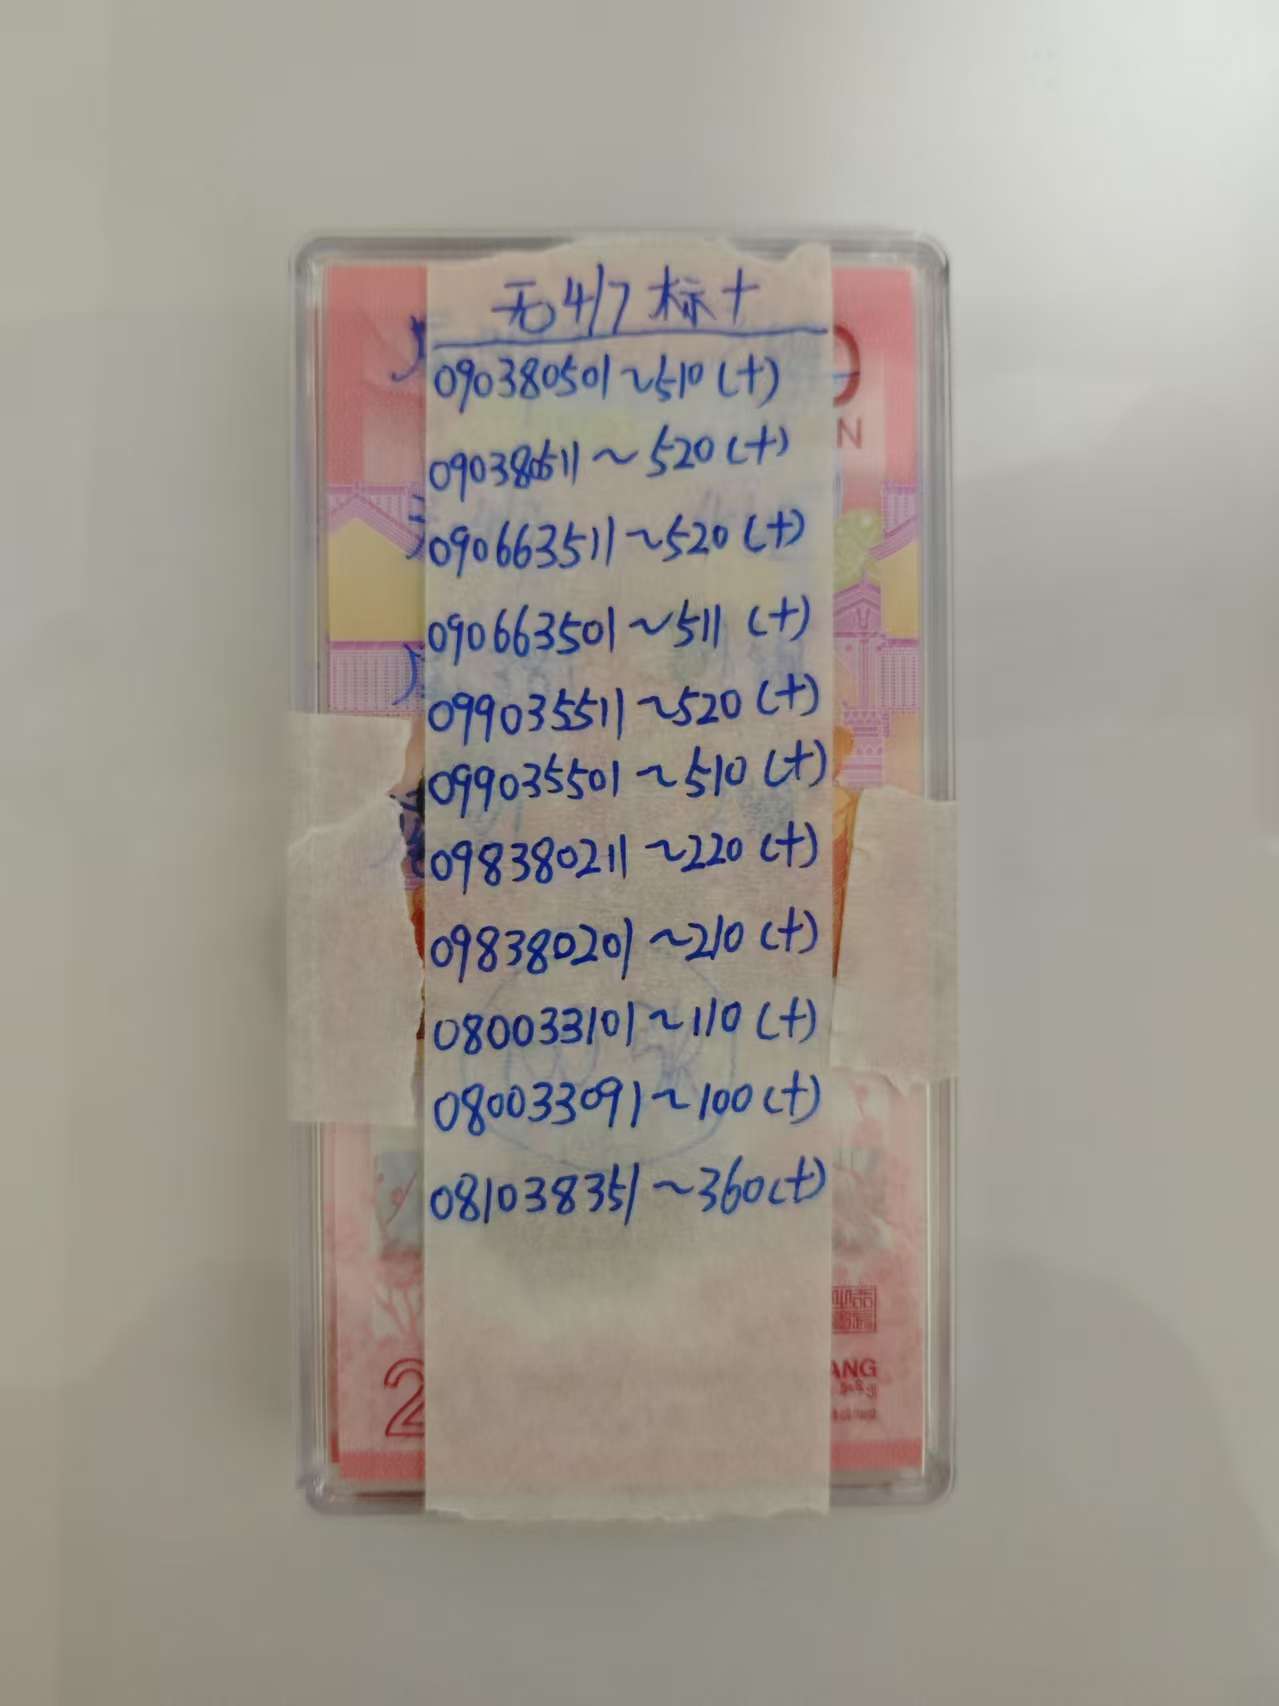 无4/7 标十
090380501~510(十)
090380511~520(十)
090663511~520(十)
090663501~511(十)
099035511~520(十)
099035501~510(十)
098380211~220(十)
098380201~210(十)
080033101~110(十)
080033091~100(十)
081038351~360(十)
0
N
2
ANG